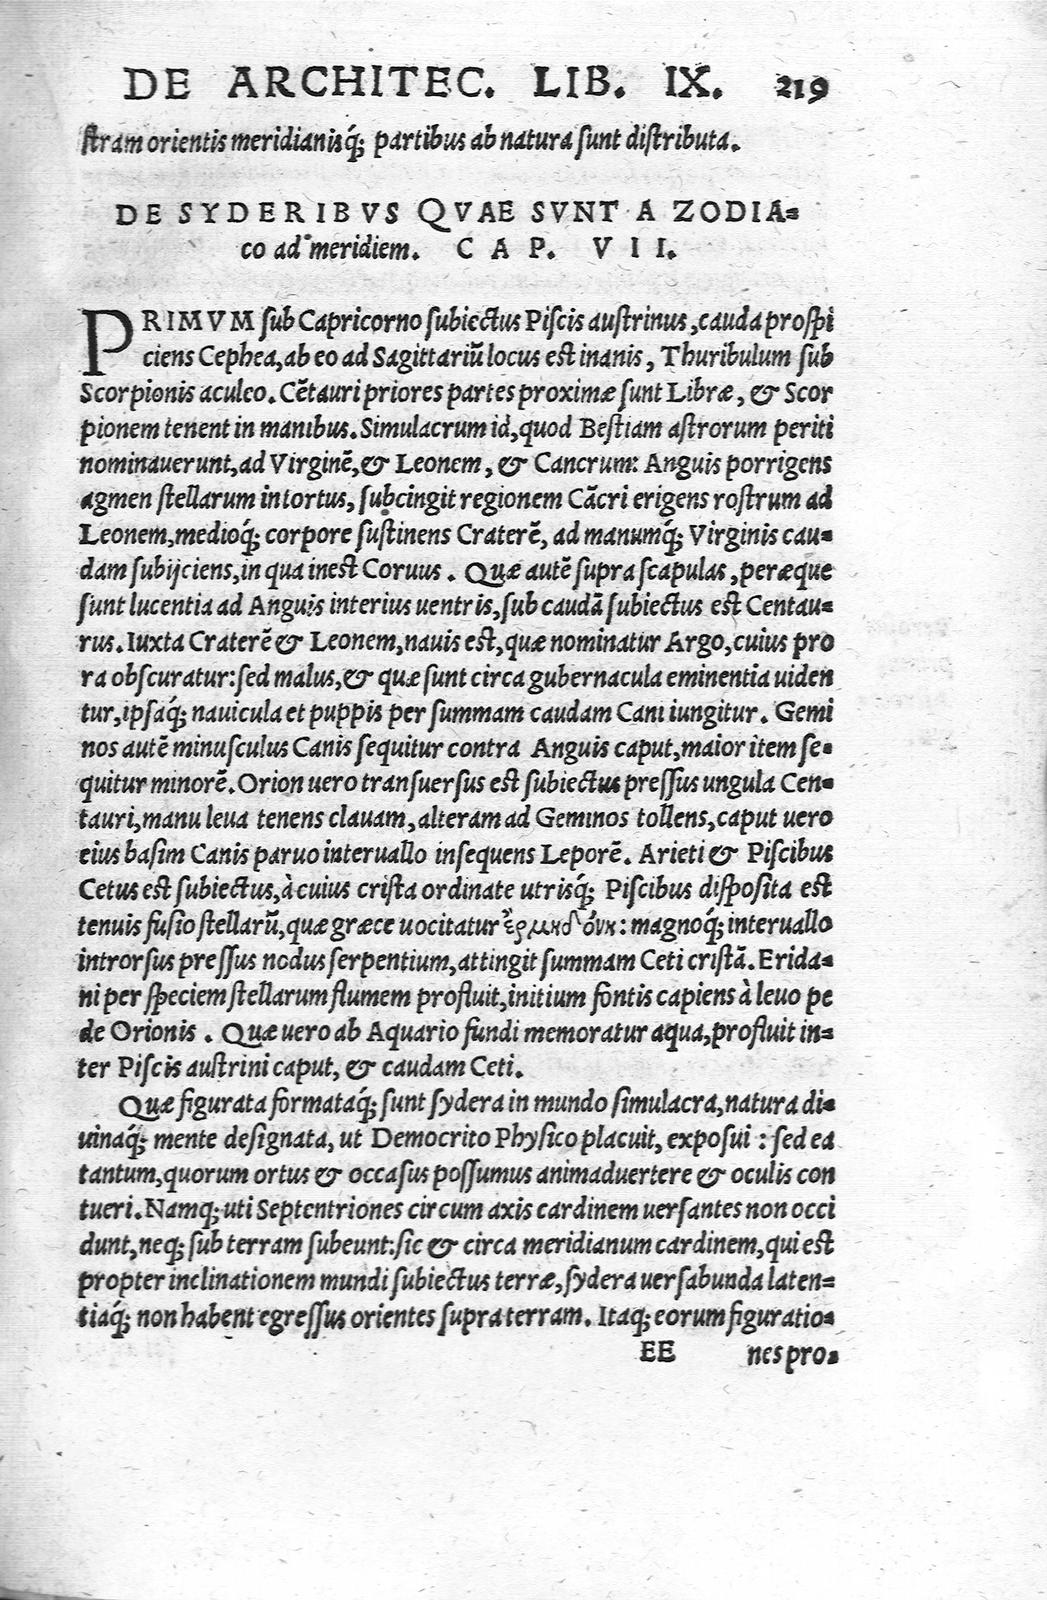 DE ARCHITEC. LIB. IX. 219
ſtram orientis meridianisq́; partibus ab natura ſunt diſtributa.
DE SYDERIBVS QVAE SVNT A ZODIA-
co ad meridiem. CAP. VII.
PRIMVM ſub Capricorno ſubiectus Piſcis auſtrinus, cauda proſpi
ciens Cephea, ab eo ad Sagittariū locus eſt inanis, Thuribulum ſub
Scorpionis aculeo. Cētauri priores partes proximæ ſunt Libræ, & Scor
pionem tenent in manibus. Simulacrum id, quod Beſtiam aſtrorum periti
nominauerunt, ad Virginē, & Leonem, & Cancrum: Anguis porrigens
agmen ſtellarum intortus, ſubcingit regionem Cācri erigens roſtrum ad
Leonem, medioq́; corpore ſuſtinens Craterē, ad manumq́; Virginis cau-
dam ſubijciens, in qua ineſt Coruus. Quæ autē ſupra ſcapulas, peræque
ſunt lucentia ad Anguis interius uentris, ſub caudā ſubiectus eſt Centau-
rus. Iuxta Craterē & Leonem, nauis eſt, quæ nominatur Argo, cuius pro
ra obſcuratur: ſed malus, & quæ ſunt circa gubernacula eminentia uiden
tur, ipſaq́; nauicula et puppis per ſummam caudam Cani iungitur. Gemi
nos autē minuſculus Canis ſequitur contra Anguis caput, maior item ſe-
quitur minorē. Orion uero tranſuerſus eſt ſubiectus preſſus ungula Cen-
tauri, manu leua tenens clauam, alteram ad Geminos tollens, caput uero
eius baſim Canis paruo interuallo inſequens Leporē. Arieti & Piſcibus
Cetus eſt ſubiectus, à cuius criſta ordinate utriſq́; Piſcibus diſpoſita eſt
tenuis fuſio ſtellarū, quæ græce uocitatur ἑρμηδόνη: magnoq́; interuallo
introrſus preſſus nodus ſerpentium, attingit ſummam Ceti criſtā. Erida-
ni per ſpeciem ſtellarum flumem profluit, initium fontis capiens à leuo pe
de Orionis. Quæ uero ab Aquario fundi memoratur aqua, profluit in-
ter Piſcis auſtrini caput, & caudam Ceti.
Quæ figurata formataq́; ſunt ſydera in mundo ſimulacra, natura di-
uinaq́; mente deſignata, ut Democrito Phyſico placuit, expoſui: ſed ea
tantum, quorum ortus & occaſus poſſumus animaduertere & oculis con
tueri. Namq; uti Septentriones circum axis cardinem uerſantes non occi
dunt, neq; ſub terram ſubeunt: ſic & circa meridianum cardinem, qui eſt
propter inclinationem mundi ſubiectus terræ, ſydera uerſabunda laten-
tiaq́; non habent egreſſus orientes ſupra terram. Itaq; eorum figuratio-
EE nes pro-